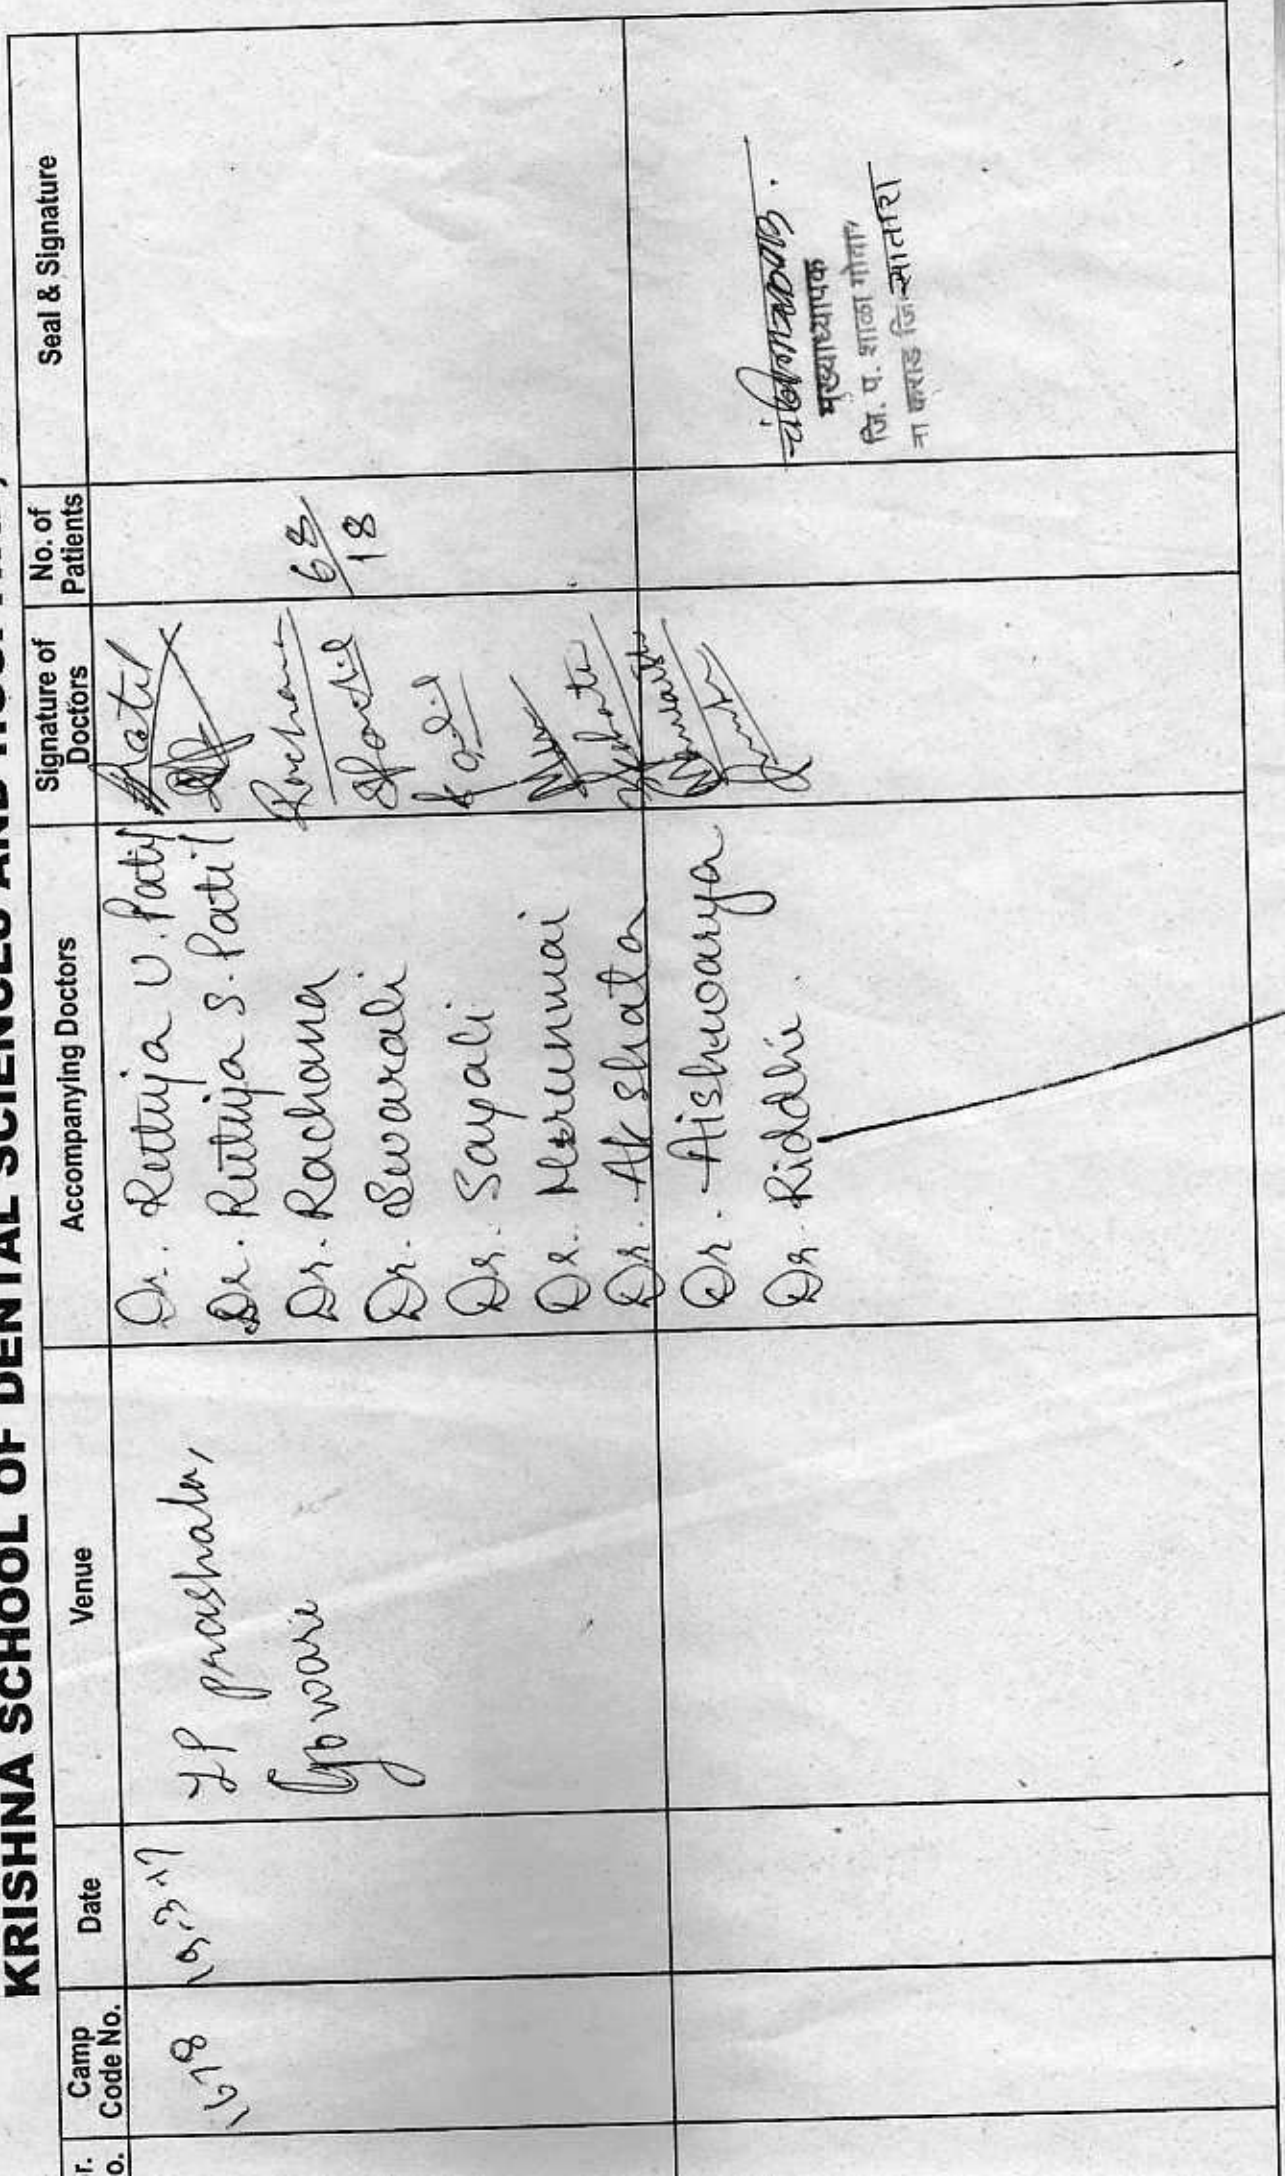 KRISHNA SCHOOL OF DENTAL SCIENCES AND
r.
o.
Camp
Code No.
Date
Venue
Accompanying Doctors
Signature of
Doctors
No. of
Patients
Seal & Signature
1678
ZP prashala,
Dr. Rutuja U. Patil
Dr. Rutuja S. Patil
Dr. Rachana
Dr. Swarali
Dr. Sayali
Dr. Mrunmai
Dr. Akshata
Dr. Aishwarya
Dr. Riddhi
Patil
Rachana
68
18
मुख्याध्यापक
जि. प. शाळा
ता कराड जि. सातारा